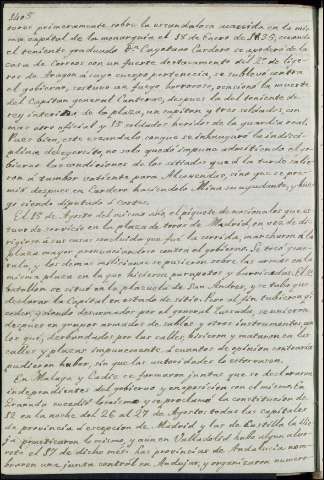 1405
tores primeramente sobre la escandalosa acaecida en la mis-
ma capital de la monarquía el 18 de Enero de 1835, cuando
el teniente graduado Dn. Cayetano Cardero se apoderó de la
casa de Correos con un fuerte destacamento del 2º de lige-
ros de Aragon á cuyo cuerpo pertenecía, se sublevó contra
el gobierno, sostuvo un fuego horroroso, ocasionó la muerte
del Capitan general Canterac, despues la del teniente de
rey interino de la plaza, un capitan y tres soldados, con
mas otro oficial y 15 soldados heridos de la guardia real.
Pues bien, este escandalo conque se inauguró la indisci-
plina del ejercito, no solo quedó impune admitiendo el go-
bierno las condiciones de los sitiados que á la tarde salie-
ron á tambor batiente para Alcovendas, sino que se pre-
mió despues en Cardero haciendole Mina su ayudante, y lue-
go siendo diputado á cortes.
El 15 de Agosto del mismo año, el piquete de nacionales que es-
tuvo de servicio en la plaza de toros de Madrid, en vez de di-
rigirse á sus casas concluida que fué la corrida, marcharon á la
plaza mayor pronunciandose contra el gobierno. Se tocó gene-
rala, y los demas milicianos se pusieron sobre las armas en la
misma plaza en la que hicieron parapetos y barricadas. El 2º
batallon se situó en la plazuela de San Andres, y se tubo que
declarar la Capital en estado de sitio. Pero al fin tubieron que
ceder, y siendo desarmados por el general Latre, se unieron
despues en grupos armados de sables y otros instrumentos, con
los que, desbandados por las calles, hirieron y mataron en las
calles y plazas impunemente á cuantos de opinion contraria
pudieron haber, sin que las autoridades lo estorvaran.
En Malaga y Cadiz se formaron juntas que se declararon
independientes del gobierno y en oposicion con el mismo. En
Granada sucedió lo mismo y se proclamó la constitucion de
12 en la noche del 26 al 27 de Agosto: todas las capitales
de provincia á escepcion de Madrid y las de Castilla la Vie-
ja practicaron lo mismo, y aun en Valladolid hubo algun albo-
roto el 17 de dicho mes: las provincias de Andalucia nom-
braron una junta central en Andujar, y organizaron numero-